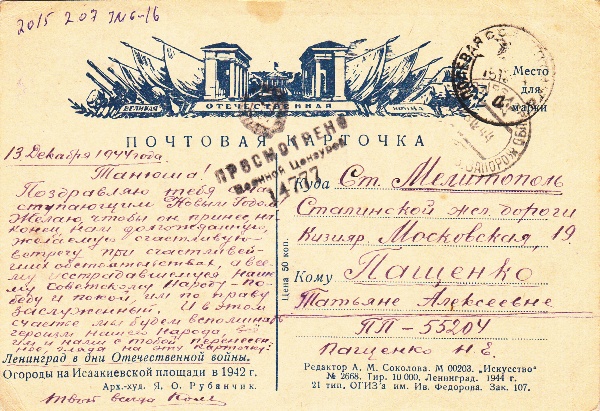 2015 207 JNG-16
Место
для
марки
ВЕЛИКАЯ ОТЕЧЕСТВЕННАЯ ВОЙНА
ПОЧТОВАЯ КАРТОЧКА
ПРОСМОТРЕНО
Военной Цензурой
14777
13 Декабря 1944 года.
Танюша!
Поздравляю тебя с на
ступающим Новым Годом
Желаю, чтобы он принес, на
конец нам долгожданную,
желаемую счастливую
встречу при счастливей-
ших обстоятельствах, а все
му исстрадавшемуся наше
му Советскому Народу - по-
беду и покой, им по праву
заслуженный. И в этом
счастье мы будем вспоминать
героизм нашего народа,
им и нами с тобой перенесен-
ное глядя на эту карточку.
Куда Ст. Мелитополь
Сталинской жел. дороги
Кизияр Московская, 19.
Кому Пащенко
Татьяне Алексеевне
ПП-55204
Пащенко Н.Е.
Цена 50 коп.
Ленинград в дни Отечественной войны.
Огороды на Исаакиевской площади в 1942 г.
Арх.-худ. Я. О. Рубанчик.
Твой всегда Коля
Редактор А. М. Соколова. М 00203. „Искусство"
№ 2668. Тир. 10 000. Ленинград. 1944 г.
21 тип. ОГИЗ'а им. Ив. Федорова. Зак. 107.